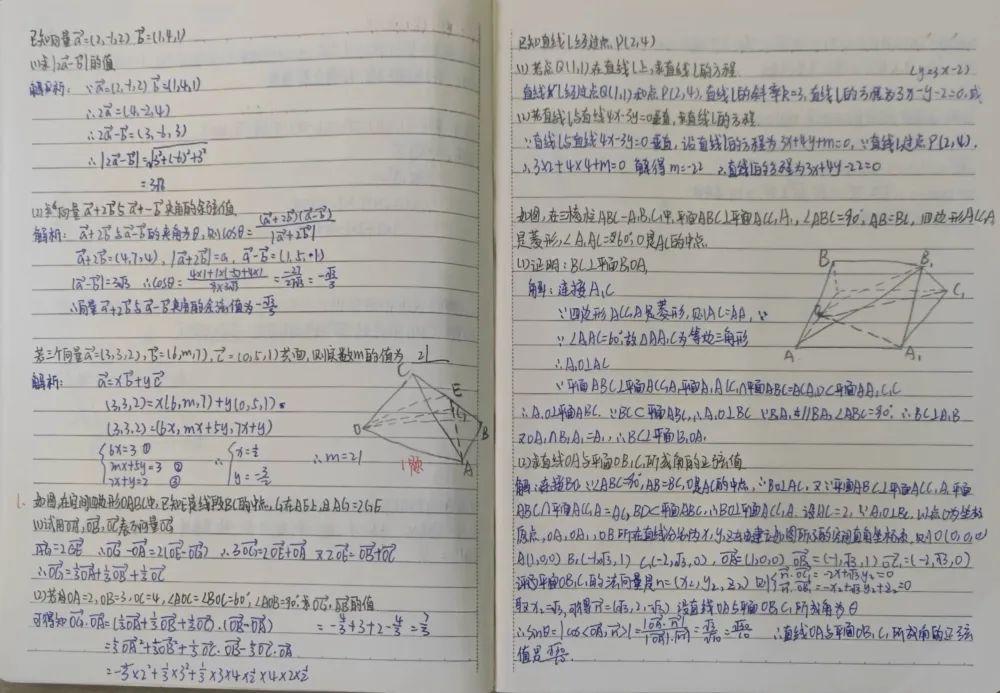 已知向量a=(2,-1,2) b=(1,4,1)
(1)求|2a-b|的值
解析: ∵a=(2,-1,2) b=(1,4,1)
∴2a=(4,-2,4)
∴2a-b=(3,-6,3)
∴|2a-b|=√3²+(-6)²+3²
(2)求向量a+2b与a-b夹角的余弦值
解析: a+2b与a-b的夹角为θ,则cosθ=(a+2b)(a-b)/|a+2b|
a+2b=(4,7,4), |a+2b|=9, a-b=(1,-5,1)
∴向量a+2b与a-b夹角的余弦值为-√3/3
若三个向量a=(3,3,2), b=(6,m,7), c=(0,5,1)共面,则实数m的值为 21
解析: a=xb+yc
(3,3,2)=x(6,m,7)+y(0,5,1)
(3,3,2)=(6x,mx+5y,7x+y)
{6x=3 ① mx+5y=3 ② 7x+y=2 ③ ∴{x=1/2 y=-3/2 ∴m=21
C E G D B A 1题
1. 如图,在空间四边形OABC中,已知E是线段BC的中点,G在AE上,且AG=2GE
(1)试用OA,OB,OC表示向量OG
AG=2GE ∴OG-OA=2(OE-OG) ∴3OG=2OE+OA 又2OE=OB+OC
∴OG=1/3OA+1/3OB+1/3OC
(2)若OA=2,OB=3,OC=4,∠AOC=∠BOC=60°,∠AOB=90°求OG·AB的值
可得知OG·AB=(1/3OA+1/3OB+1/3OC)·(OB-OA) =-4/3+3+2-4/3=7/3
=-1/3OA²+1/3OB²+1/3OC·OB-1/3OC·OA
=-1/3×2²+1/3×3²+1/3×3×4×1/2-1/3×4×2×1/2
已知直线l经过点P(2,4)
(1)若点Q(1,1)在直线l上,求直线l的方程 (y=3x-2)
直线l经过点Q(1,1)和点P(2,4),直线l的斜率k=3,直线l的方程为3x-y-2=0,
(2)若直线l与直线4x-3y=0垂直,求直线l的方程
∵直线l与直线4x-3y=0垂直,设直线l的方程为3x+4y+m=0,∵直线l过点P(2,4),
∴3×2+4×4+m=0 解得m=-22 ∴直线l的方程为3x+4y-22=0
如图,在三棱柱ABC-A₁B₁C₁中,平面ABC⊥平面ACC₁A₁,∠ABC=90°,AB=BC,四边形ACC₁A₁
是菱形,∠A₁AC=60°,O是AC的中点
(1)证明:BC⊥平面B₁OA₁
解:连接A₁C
∵四边形ACC₁A₁是菱形,则AC=AA₁
∵∠A₁AC=60°故△AA₁C为等边三角形
∴A₁O⊥AC
B B₁ C₁ A A₁
∵平面ABC⊥平面ACC₁A₁平面A₁ACC₁∩平面ABC=AC,A₁O⊂平面AA₁C₁C
∴A₁O⊥平面ABC. ∵BC⊂平面ABC,∴A₁O⊥BC ∵B₁A₁//BA,∠ABC=90°,∴BC⊥A₁B₁
又OA₁∩B₁A₁=A₁,∴BC⊥平面B₁OA₁
(2)求直线OA₁与平面OB₁C₁所成角的正弦值
解:连接BO ∵∠ABC=90°,AB=BC,O是AC的中点,∴BO⊥AC,又∵平面ABC⊥平面ACC₁A₁平面
ABC∩平面ACC₁A₁=AC,BO⊂平面ABC,∴BO⊥平面ACC₁A₁ 设AC=2,∵A₁O⊥BC,以点O为坐标
原点,OA,OA₁,OB所在直线分别为x,y,z轴建立如图所示的空间直角坐标系,则O(0,0,0)
A(1,0,0) B₁(-1,√3,1) C₁(-2,√3,0)
设平面OB₁C₁的法向量是n=(x₂,y₂,z₂)则{n·OC₁=-2x₂+√3y₂=0 n·OB₁=-x₂+√3y₂+z₂=0
取x₂=√3,可得n=(√3,2,-√3) 设直线OA与平面OB₁C₁所成角为θ
∴直线OA与平面OB₁C₁所成角的正弦
值是√30/10.